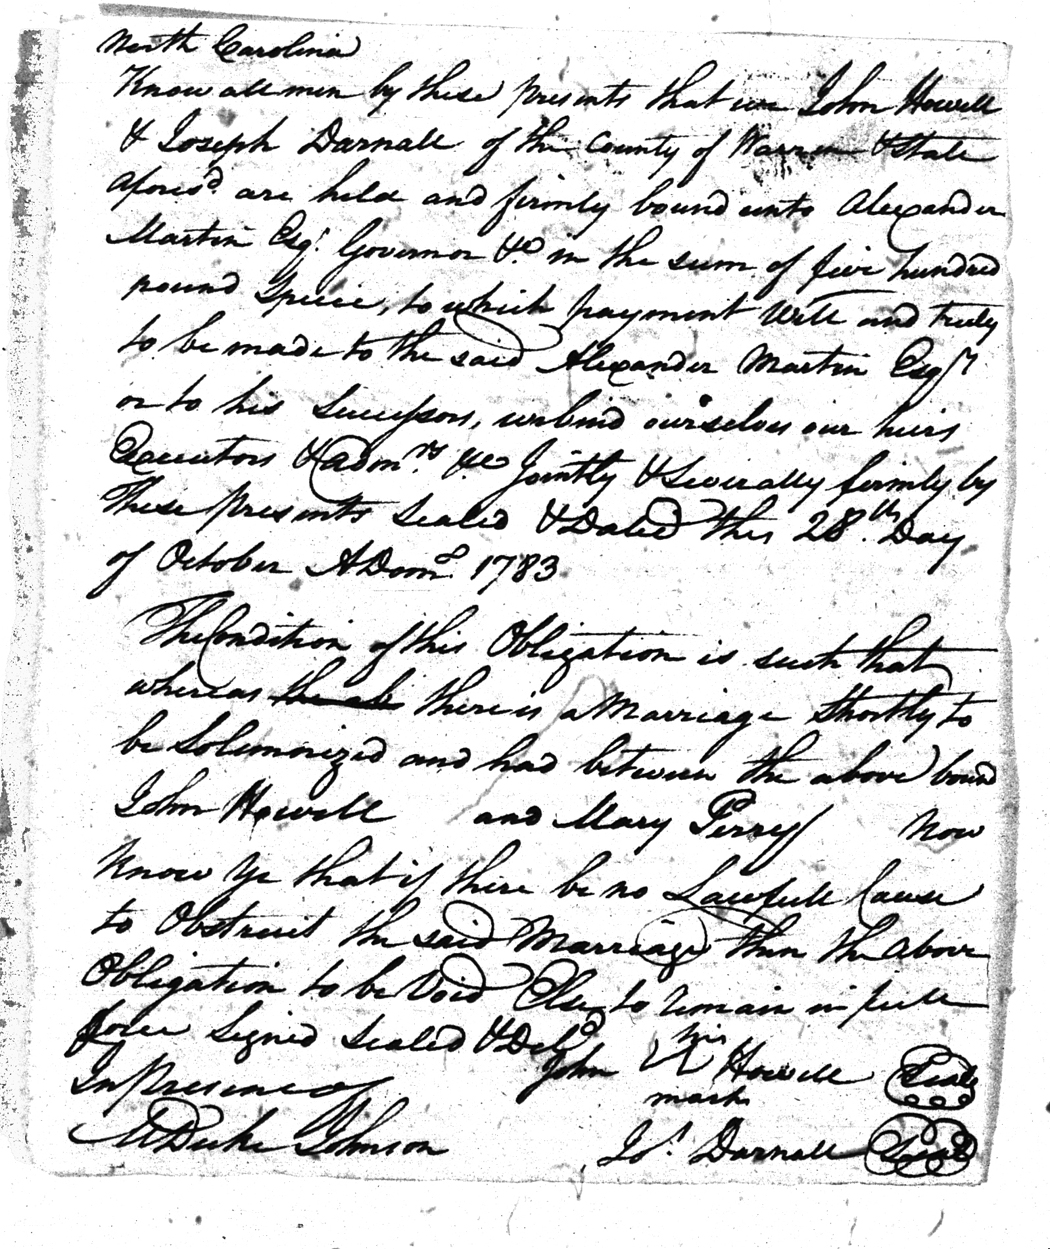 North Carolina
Know all men by these presents that we John Howell
& Joseph Darnall of the County of Warren & State
afores.d are held and firmly bound unto Alexander
Martin Esq.r Governor &c. in the sum of five hundred
pound Specie, to which payment Will and truly
to be made to the said Alexander Martin Esq.r
or to his Successors, we bind ourselves our heirs
Executors & Adm.rs &c. Jointly & Severally firmly by
these presents Sealed & Dated this 28.th Day
of October A Dom.o 1783
The Condition of this Obligation is such that
whereas the abo there is a Marriage Shortly to
be Solemnized and had between the above bound
John Howell and Mary Perry Now
Know Ye that if there be no Lawfull Cause
to Obstruct the said Marriage then the above
Obligation to be Void Else to remain in full
force Signed Sealed & Del.d
In presence of
his
John Howell Seal
mark
M Duke Johnson
Jo.s Darnall Seal